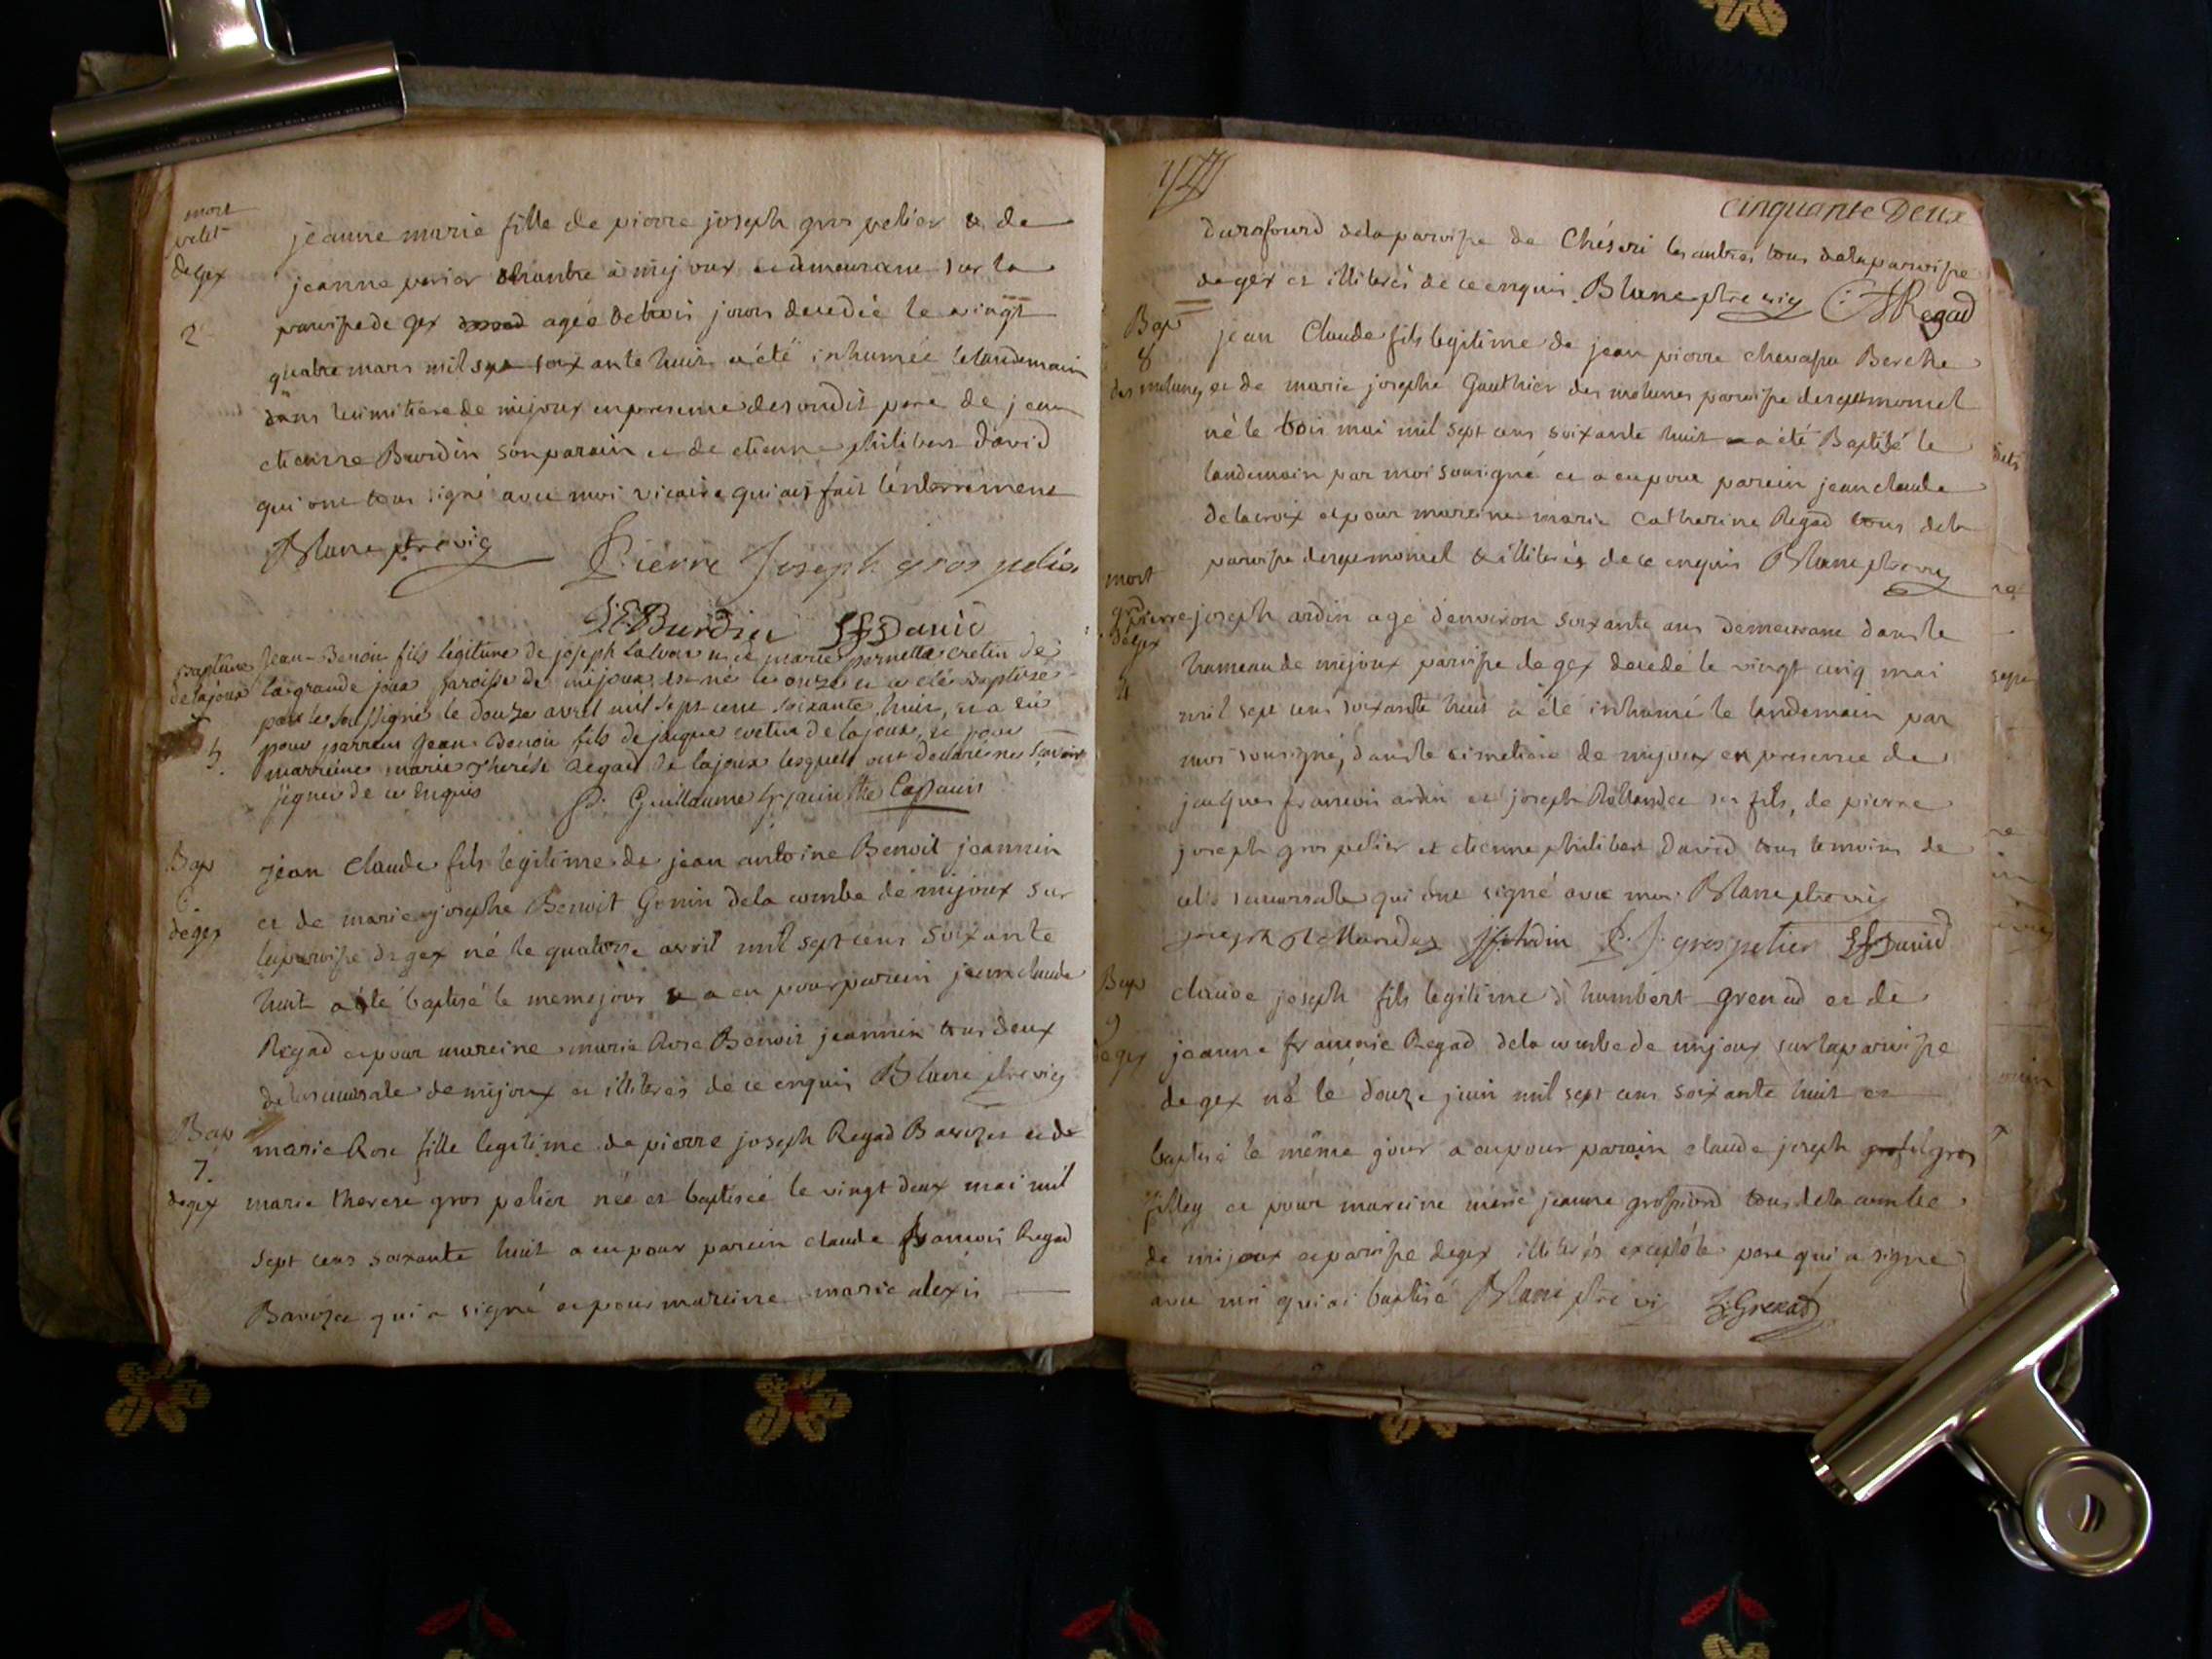 mort
de gex
2
jeanne marie fille de pierre joseph gros pelier & de
jeanne perier a mijoux et demeurant sur la
paroisse de gex ageé de trois jours decedée le vingt
quatre mars mil sept soixante huit a été inhumée le landemain
dans le cimitiere de mijoux en presence de sondit pere de jean
etienne Burdin son parain et de etienne philibert david
qui ont tous signé avec moi vicaire qui ait fait l'enterrement
Blanc ptre vic Pierre Joseph gros pelier
J:E Burdin David
Baptême
de lajoux
5.
Jean-Benoit fils légitime de joseph et de marie pernette cretin de
la grande joux paroisse de mijoux, est né le onze et a été Baptisé
par le soussigné le douze avril mil sept cent soixante huit, et a eu
pour parrein Jean Benoit fils de jacque cretin de lajoux, et pour
marreine marie Therese Regad de lajoux lesquels ont declaré ne savoir
signer de ce enquis P. Guillaume hyacinthe Capucin
Bap
6.
de gex
jean Claude fils legitime de jean antoine Benoit jeannin
et de marie josephe Benoit Gonin dela combe de mijoux sur
la paroisse de gex né le quatorze avril mil sept cens soixante
huit a été baptisé le meme jour & a eu pour parain jean claude
Regad et pour mareine marie Rose Benoit jeannin tous deux
de la succursale de mijoux et illiterés de ce enquis Blanc ptre vic
Bap
7.
de gex
marie Rose fille legitime de pierre joseph Regad Barozet et de
marie therese gros pelier née et baptiseé le vingt deux mai mil
sept cens soixante huit a eu pour parein claude francois Regad
Barozet qui a signé et pour mareine marie alexis
cinquante Deux
durafourd de la paroisse de Chéseri les autres tous de la paroisse
de gex et illiterés de ce enquis Blanc ptre vic Regad
Bap
8
des molunes
jean Claude fils legitime de jean pierre chevassu Berche
et de marie josephe Gauthier des molunes paroisse de septmoncel
né le trois mai mil sept cens soixante huit a été Baptisé le
landemain par moi sousigné et a eu pour parein jean claude
delacroix et pour mareine marie Catherine Regad tous de la
paroisse de septmoncel & illiterés de ce enquis Blanc ptre vic
mort
de gex
4
pierre joseph ardin agé d'environ soixante ans demeurant dans le
hameau de mijoux paroisse de gex decedé le vingt cinq mai
mil sept cens soixante huit a été inhumé le landemain par
moi sousigné, dans le cimetiere de mijoux en presence de
jacques francois ardin et joseph Rollandez ses fils, de pierre
joseph gros pelier et etienne philibert david tous temoins de
cette succursale qui ont signé avec moi Blanc ptre vic
joseph Rollandez jf ardin P. J. gros pelier David
Bap
9
de gex
claude joseph fils legitime d'humbert grenad et de
jeanne francoise Regad dela combe de mijoux sur la paroisse
de gex né le douze juin mil sept cens soixante huit et
baptisé le même jour a eu pour parain claude joseph gros
filley et pour mareine marie jeanne grospiard tous de la combe
de mijoux et paroisse de gex illiterés excepté le pere qui a signé
avec moi qui ai baptisé Blanc ptre vic H: Grenad